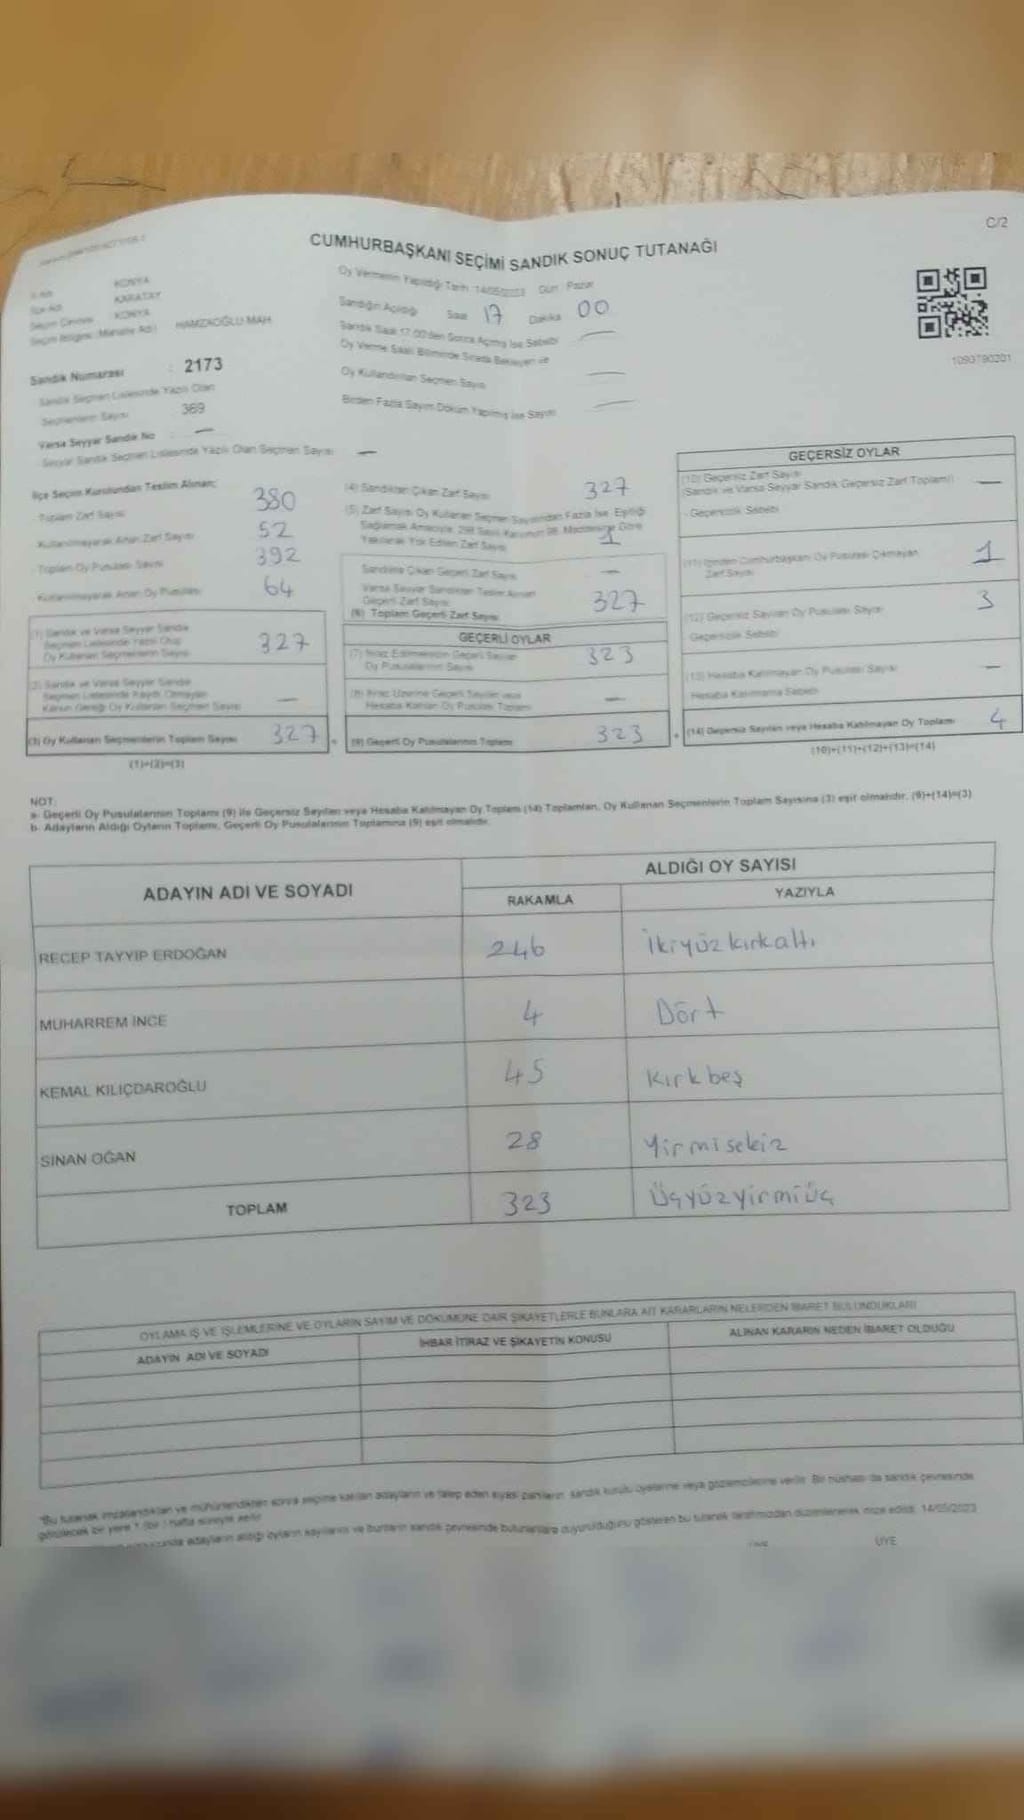 C/2
CUMHURBAŞKANI SEÇİMİ SANDIK SONUÇ TUTANAĞI
KONYA
KARATAY
KONYA
Seçim Bölgesi (Mahalle Adı) HAMZAOĞLU MAH
Sandık Numarası : 2173
Sandık Seçmen Listesinde Yazılı Olan
Seçmenlerin Sayısı 369
Varsa Seyyar Sandık No : —
Seyyar Sandık Seçmen Listesinde Yazılı Olan Seçmen Sayısı —
Oy Vermenin Yapıldığı Tarih :14/05/2023 Gün : Pazar
Sandığın Açıldığı Saat 17 Dakika 00
Sandık Saat 17:00'den Sonra Açılmış İse Sebebi —
Oy Verme Saati Bitiminde Sırada Bekleyen ve
Oy Kullandırılan Seçmen Sayısı —
Birden Fazla Sayım Döküm Yapılmış İse Sayısı —
1093790201
İlçe Seçim Kurulundan Teslim Alınan;
Toplam Zarf Sayısı 380
Kullanılmayarak Artan Zarf Sayısı 52
Toplam Oy Pusulası Sayısı 392
Kullanılmayarak Artan Oy Pusulası 64
(1) Sandık ve Varsa Seyyar Sandık
Seçmen Listesinde Yazılı Olup
Oy Kullanan Seçmenlerin Sayısı 327
(2) Sandık ve Varsa Seyyar Sandık
Seçmen Listesinde Kaydı Olmayan
Kanun Gereği Oy Kullanan Seçmen Sayısı —
(3) Oy Kullanan Seçmenlerin Toplam Sayısı 327
(1)+(2)=(3)
(4) Sandıktan Çıkan Zarf Sayısı 327
(5) Zarf Sayısı Oy Kullanan Seçmen Sayısından Fazla İse, Eşitliği
Sağlamak Amacıyla, 298 Sayılı Kanunun 98. Maddesine Göre
Yakılarak Yok Edilen Zarf Sayısı 1
Sandıkta Çıkan Geçerli Zarf Sayısı —
Varsa Seyyar Sandıktan Teslim Alınan
Geçerli Zarf Sayısı
(6) Toplam Geçerli Zarf Sayısı 327
GEÇERLİ OYLAR
(7) İtiraz Edilmeksizin Geçerli Sayılan
Oy Pusulalarının Sayısı 323
(8) İtiraz Üzerine Geçerli Sayılan veya
Hesaba Katılan Oy Pusulası Toplamı —
(9) Geçerli Oy Pusulalarının Toplamı 323
GEÇERSİZ OYLAR
(10) Geçersiz Zarf Sayısı —
(Sandık ve Varsa Seyyar Sandık Geçersiz Zarf Toplamı)
Geçersizlik Sebebi
(11) İçinden Cumhurbaşkanı Oy Pusulası Çıkmayan
Zarf Sayısı 1
(12) Geçersiz Sayılan Oy Pusulası Sayısı 3
Geçersizlik Sebebi
(13) Hesaba Katılmayan Oy Pusulası Sayısı —
Hesaba Katılmama Sebebi
(14) Geçersiz Sayılan veya Hesaba Katılmayan Oy Toplamı 4
(10)+(11)+(12)+(13)=(14)
NOT:
a- Geçerli Oy Pusulalarının Toplamı (9) ile Geçersiz Sayılan veya Hesaba Katılmayan Oy Toplam (14) Toplamları, Oy Kullanan Seçmenlerin Toplam Sayısına (3) eşit olmalıdır. (9)+(14)=(3)
b- Adayların Aldığı Oyların Toplamı, Geçerli Oy Pusulalarının Toplamına (9) eşit olmalıdır.
ADAYIN ADI VE SOYADI ALDIĞI OY SAYISI
RAKAMLA YAZIYLA
RECEP TAYYİP ERDOĞAN 246 İkiyüzkırkaltı
MUHARREM İNCE 4 Dört
KEMAL KILIÇDAROĞLU 45 Kırkbeş
SİNAN OĞAN 28 Yirmisekiz
TOPLAM 323 Üçyüzyirmiüç
OYLAMA İŞ VE İŞLEMLERİNE VE OYLARIN SAYIM VE DÖKÜMÜNE DAİR ŞİKAYETLERLE BUNLARA AİT KARARLARIN NELERDEN İBARET BULUNDUKLARI
ADAYIN ADI VE SOYADI İHBAR İTİRAZ VE ŞİKAYETİN KONUSU ALINAN KARARIN NEDEN İBARET OLDUĞU
"Bu tutanak imzalandıktan ve mühürlendikten sonra seçime katılan adayların ve talep eden siyasi partilerin sandık kurulu üyelerine veya gözlemcilerine verilir. Bir nüshası da sandık çevresinde
görülecek bir yere 1 (bir) hafta süreyle asılır
adayların aldığı oyların sayılarını ve bunların sandık çevresinde bulunanlara duyurulduğunu gösteren bu tutanak tarafımızdan düzenlenerek imza edildi. 14/05/2023
ÜYE